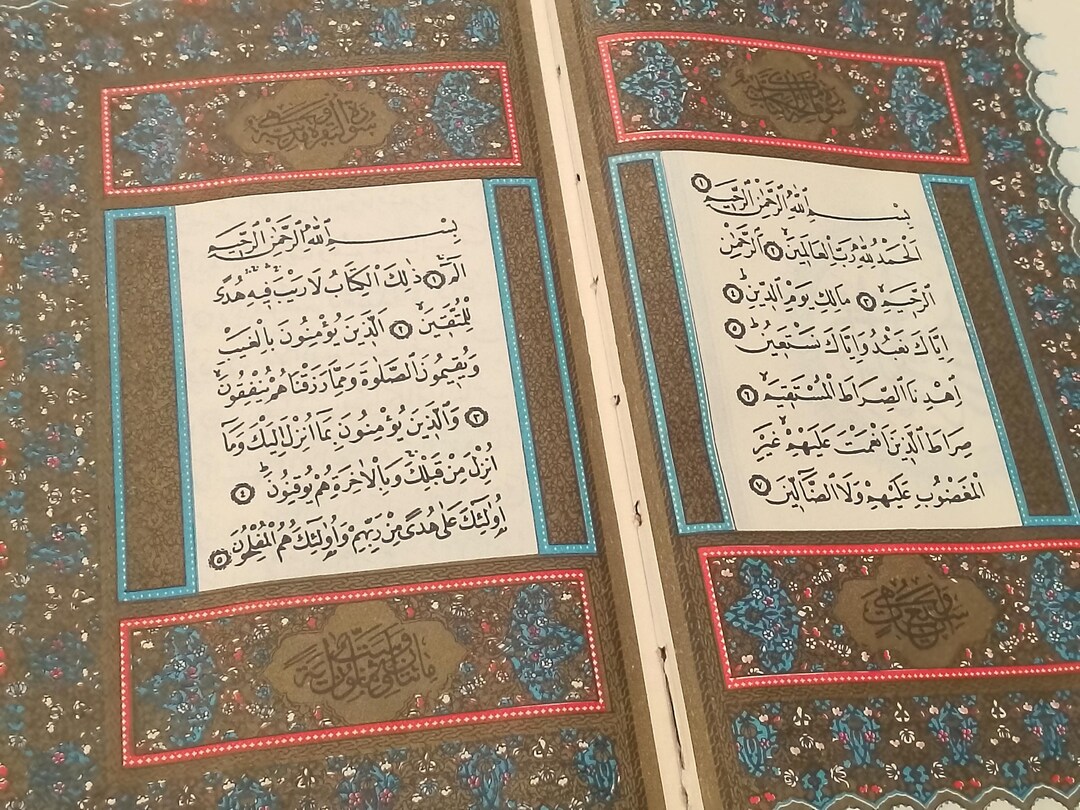 بِسْمِ اللّٰهِ الرَّحْمٰنِ الرَّحِيمِ ١
اَلْحَمْدُ لِلّٰهِ رَبِّ الْعَالَمِينَۙ ٢ اَلرَّحْمٰنِ
الرَّحِيمِۙ ٣ مَالِكِ يَوْمِ الدِّينِۜ ٤
اِيَّاكَ نَعْبُدُ وَاِيَّاكَ نَسْتَعِينُۜ ٥
اِهْدِنَا الصِّرَاطَ الْمُسْتَقِيمَۙ ٦
صِرَاطَ الَّذِينَ اَنْعَمْتَ عَلَيْهِمْۙ غَيْرِ
الْمَغْضُوبِ عَلَيْهِمْ وَلَا الضَّٓالِّينَ ٧
سورة البقرة مدنية وهي
بِسْمِ اللّٰهِ الرَّحْمٰنِ الرَّحِيمِ
الٓمٓۚ ١ ذٰلِكَ الْكِتَابُ لَا رَيْبَۚۛ فِيهِۚۛ هُدًى
لِلْمُتَّقِينَۙ ٢ اَلَّذِينَ يُؤْمِنُونَ بِالْغَيْبِ
وَيُقِيمُونَ الصَّلٰوةَ وَمِمَّا رَزَقْنَاهُمْ يُنْفِقُونَۙ
٣ وَالَّذِينَ يُؤْمِنُونَ بِمَٓا اُنْزِلَ اِلَيْكَ وَمَٓا
اُنْزِلَ مِنْ قَبْلِكَۚ وَبِالْاٰخِرَةِ هُمْ يُوقِنُونَۜ ٤
اُو۬لٰٓئِكَ عَلٰى هُدًى مِنْ رَبِّهِمْ وَاُو۬لٰٓئِكَ هُمُ الْمُفْلِحُونَ ٥